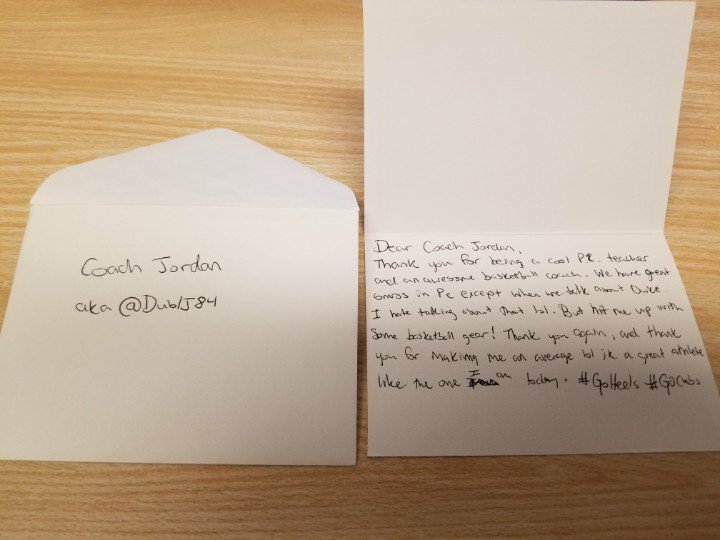 Coach Jordan
aka @DublJ84
Dear Coach Jordan,
Thank you for being a cool P.E. teacher
and an awesome basketball coach. We have great
convos in PE except when we talk about Duke.
I hate talking about that lol. But hit me up with
some basketball gear! Thank you again, and thank
you for making me an average lol jk a great athlete
like the one I am today. #GoHeels #GoCubs